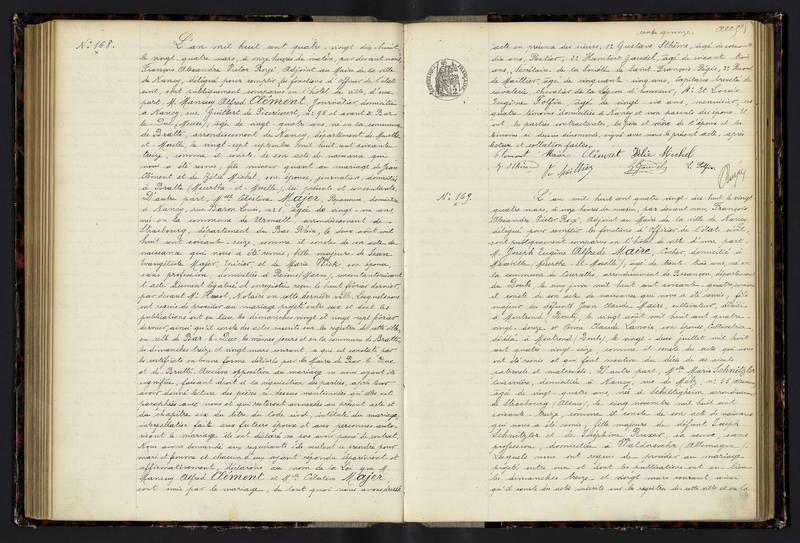 N° 168.
L'an mil huit cent quatre-vingt dix-huit,
le vingt-quatre mars, à onze heures du matin, par devant nous
François Alexandre Victor Adjoint au Maire de la ville
de Nancy, délégué pour remplir les fonctions d'officier de l'état
civil, ont publiquement comparu en l'hôtel de ville, d'une
part M. Mansuy Alfred Clément, Journalier, domicilié
à Nancy, rue Guilbert de Pixérécourt, n° 98 et avant à Bar-
le-Duc (Meuse), âgé de vingt-quatre ans, né en la commune
de Bratte, arrondissement de Nancy, département de Meurthe
et Moselle, le vingt-sept septembre mil huit cent soixante-
treize, comme il conste de son acte de naissance qui
nous a été remis, fils mineur quant au mariage de Jean
Clément et de Zélie Michel, son épouse, journaliers, domiciliés
à Bratte (Meurthe-et-Moselle), ici présents et consentants.
D'autre part, Mlle Célestine Majer, Repasseuse, domiciliée
à Nancy, rue Baron Louis, n° 1, âgée de vingt- ans
née en la commune de arrondissement de
Strasbourg, département du Bas-Rhin, le deux août mil
huit cent soixante-seize, comme il conste de son acte de
naissance qui nous a été remis, fille majeure de Jean
Evangeliste Majer, et de Marie son épouse,
sans profession, domiciliés à Reims (Marne), consentants suivant
l'acte dûment légalisé et enregistré reçu le huit février dernier,
par devant Me Notaire en cette dernière ville. Lesquels nous
ont requis de procéder au mariage projeté entre eux et dont les
publications ont eu lieu les dimanches vingt et vingt-sept février
dernier, ainsi qu'il conste des actes inscrits sur les registres de cette ville,
en celle de Bar-le-Duc, les mêmes jours et en la commune de Bratte
les dimanches treize et vingt mars courant, ce qui est constaté par
les certificats en bonne forme délivrés par les Maires de Bar-le-Duc
et de Bratte. Aucune opposition au mariage ne nous ayant été
signifiée, faisant droit à la réquisition des parties, après leur
avoir donné lecture des pièces ci-dessus mentionnées qu'elles ont
paraphées avec nous et qui resteront annexées au présent acte et
du chapitre six du titre du code civil, intitulé du mariage,
interpellation faite aux futurs époux et aux personnes auto-
risant le mariage ils ont déclaré ne pas avoir passé de contrat.
Nous avons demandé aux époux s'ils veulent se prendre pour
mari et femme et chacun d'eux ayant répondu séparément et
affirmativement, déclarons au nom de la loi que M.
Mansuy Alfred Clément et Mlle Célestine Majer
sont unis par le mariage, de tout quoi nous avons dressé
acte en présence des sieurs, 1° Gustave âgé de
dix ans, Rentier, 2° Humbert Gaudel, âgé de soixante
ans,
de Maillier, âgé de cinquante-cinq ans, Capitaine breveté de
cavalerie, chevalier de la Légion d'honneur, 4° Louis
Eugène Toffin, âgé de vingt-six ans, menuisier, les
quatre témoins domiciliés à Nancy et non parents des époux. Et
ont, les parties contractantes, les père et mère de l'époux et les
témoins ci-dessus dénommés, signé avec nous le présent acte, après
lecture et collation faites.
Clément Majer Clément Zélie Michel
N° 169.
L'an mil huit cent quatre-vingt dix-huit, le vingt
quatre mars, à onze heures du matin, par devant nous François
Alexandre Victor Adjoint au Maire de la ville de Nancy
délégué pour remplir les fonctions d'Officier de l'état civil,
ont publiquement comparu en l'hôtel de ville d'une part,
M. Joseph Eugène Alfred Maire, Cocher, domicilié à
Maxéville (Meurthe et Moselle), âgé de trente-trois ans, né en
la commune de arrondissement de Besançon, département
du Doubs, le cinq juin mil huit cent soixante-quatre, comme
il conste de son acte de naissance qui nous a été remis, fils
majeur de défunts Jean Claude Maire, cultivateur, décédé
à Montrond (Doubs), le vingt août mil huit cent quatre-
vingt-seize et Anne Claude son épouse, Cultivatrice
décédée à Montrond (Doubs), le vingt-deux juillet mil huit
cent quatre-vingt-onze, comme il conste des actes qui nous
ont été remis et qui font mention du décès de ses aïeuls
paternels et maternels. D'autre part, Mlle Marie Schnitzler
cuisinière, domiciliée à Nancy, rue de Metz, n° 55,
âgée de vingt-quatre ans, née à Schiltigheim, arrondissement
de Strasbourg (Alsace), le cinq novembre mil huit cent
soixante-treize, comme il conste de son acte de naissance
qui nous a été remis, fille majeure de défunt Joseph
Schnitzler et de Joséphine sa veuve, sans
profession, domiciliée à (Allemagne).
Lesquels nous ont requis de procéder au mariage
projeté entre eux et dont les publications ont eu lieu
les dimanches treize et vingt mars courant, ainsi
qu'il conste des actes inscrits sur les registres de cette ville et en la